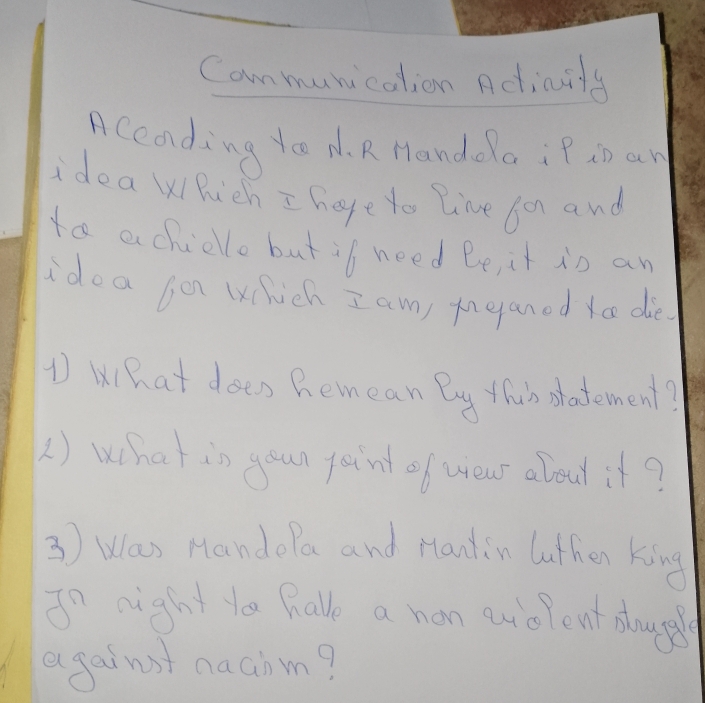 Communication Activity
According to N.R Mandela it is an
idea which I hope to live for and
to achieve but if need be, it is an
idea for which I am, prepared to die.
1) What does he mean by this statement?
2) What is your point of view about it?
3) Was Mandela and Martin luther King
Jr right to have a non violent struggle
against racism?